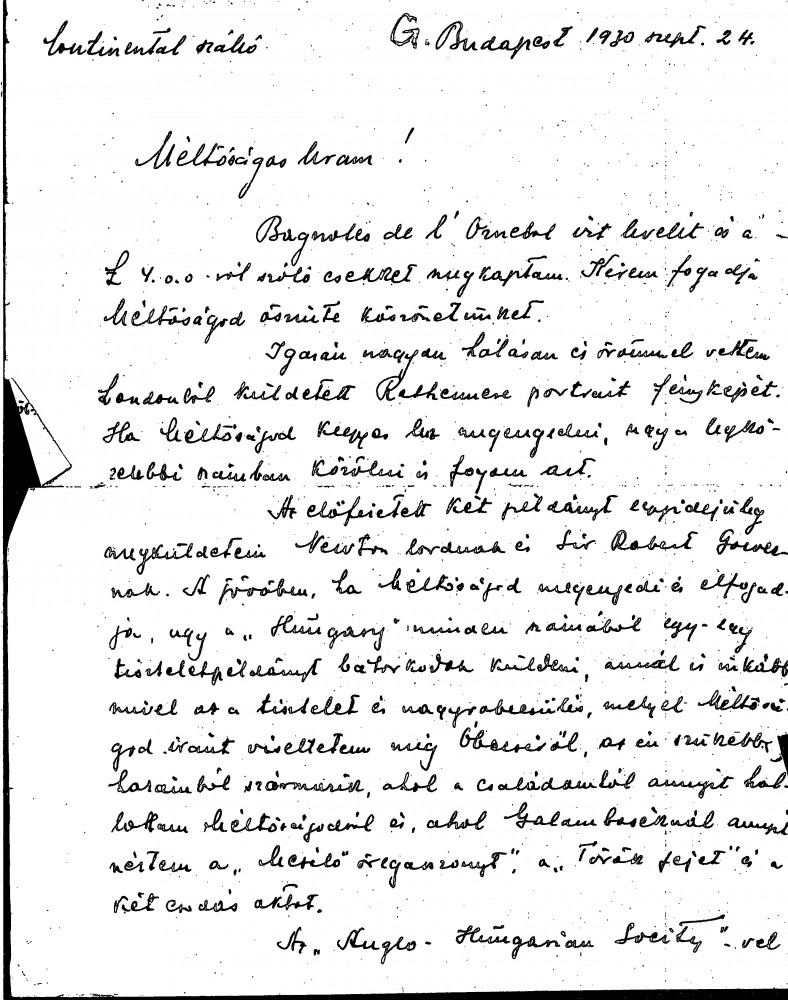 Continental szálló
G. Budapest 1930 szept. 24.
Méltóságos Uram!
Bagnoles de l'Orneból irt levelét és a
£ 4.0.0-ról szóló csekket megkaptam. Kérem fogadja
Méltóságod őszinte köszönetünket.
Igazán nagyon hálásan és örömmel vettem
Londonból küldetett Rothermere portrait fényképét.
Ha Méltóságod kegyes lesz megengedni, ugy a legkö-
zelebbi számban közölni is fogom azt.
Az előfizetett két példányt egyidejüleg
megküldetem Newton lordnak és Sir Robert Gower-
nak. A jövőben, ha Méltóságod megengedi és elfogad-
ja, ugy a „Hungary" minden számából egy-egy
tiszteletpéldányt bátorkodok küldeni, annál is inkább,
mivel az a tisztelet és nagyrabecsülés, melyet Méltósá-
god iránt viseltetem még Óbecséről, az én szükebb
hazámból származik, ahol a családomtól annyit hal-
lottam Méltóságodról és, ahol Galamboséknál annyit
néztem a „Mesélő öregasszonyt", a „Török fejet" és a
két csodás aktot.
Az „Anglo-Hungarian Socity"-vel